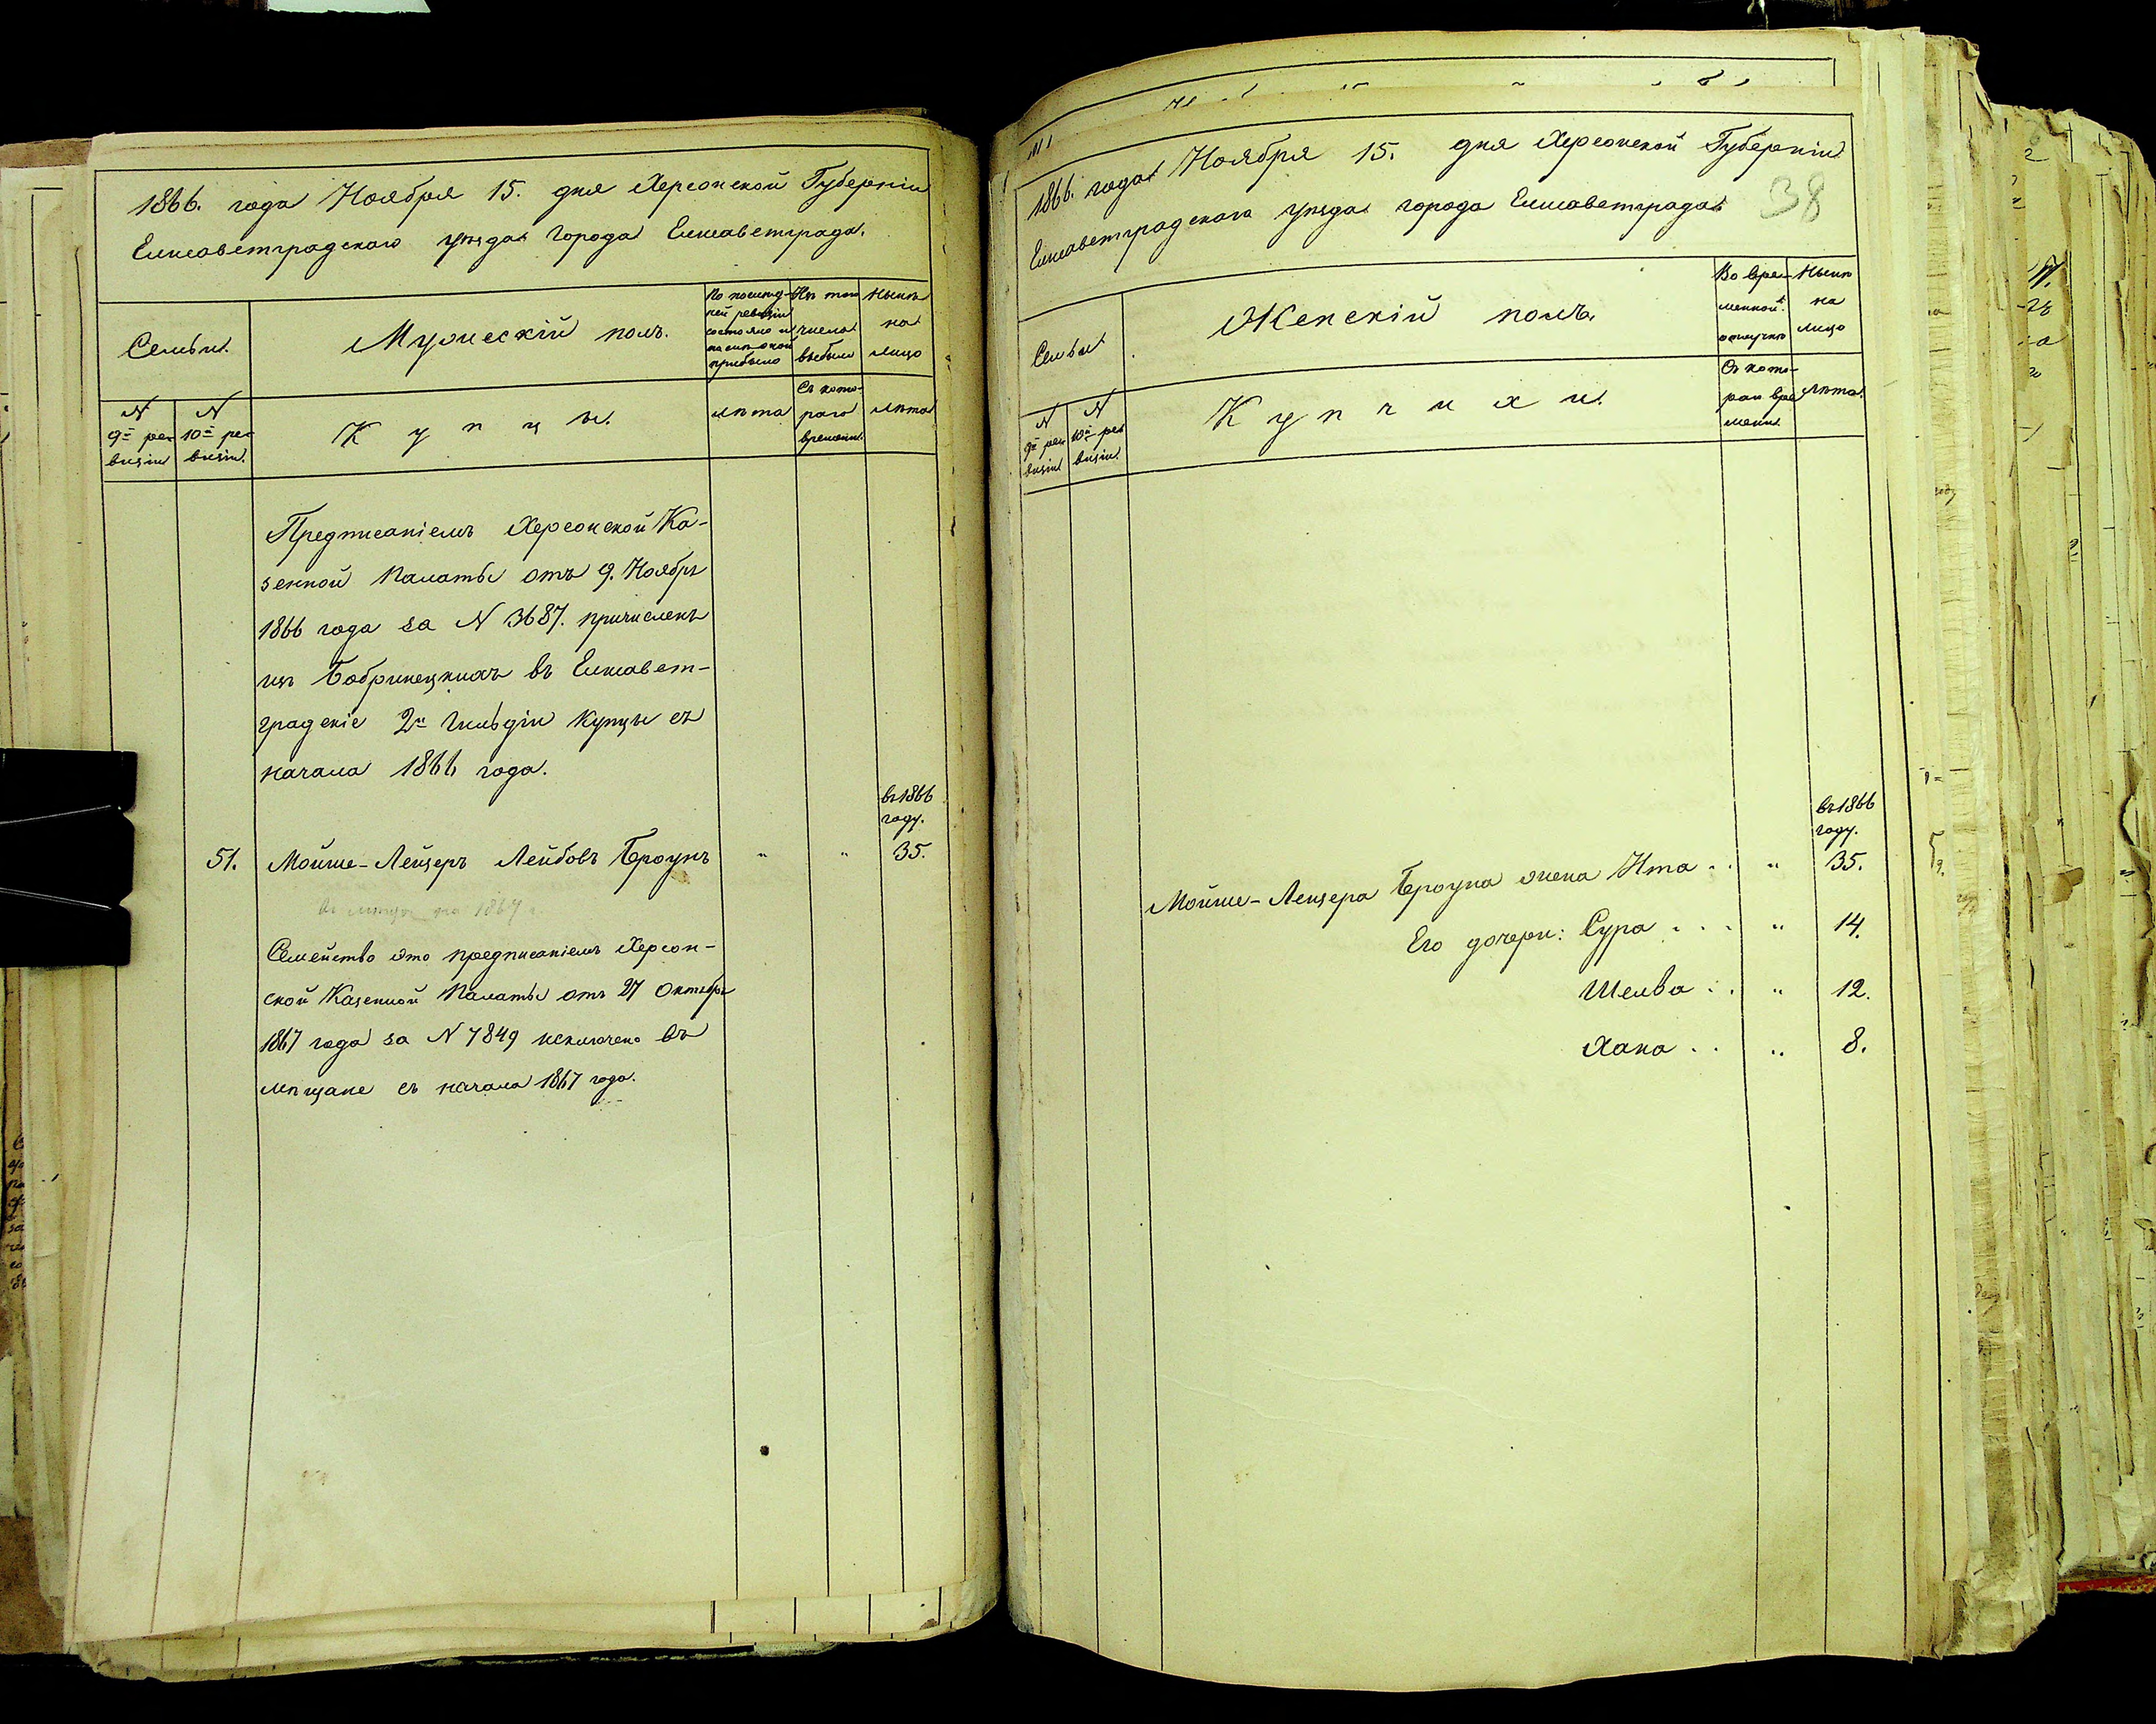 1866. года Ноября 15. дня Херсонской Губерніи
Елисаветградскаго уѣзда города Елисаветграда.
Семьи.
Мужескій полъ.
По послѣд-
ней ревизіи
состояло и
послѣ оной
прибыло
Изъ того
числа
выбыло
Нынѣ
на
лицо
N
9й ре-
визіи
N
10й ре-
визіи.
К у п ц ы.
лѣта
Съ кото-
раго
времени.
лѣта
Предписаніемъ Херсонской Ка-
зенной Палаты отъ 9. Ноября
1866 года за N 3687. причисленъ
изъ Бобринецкихъ въ Елисавет-
градскіе 2й Гильдіи купцы съ
начала 1866 года.
въ 1866
году.
51. Мойше-Лейзеръ Лейбовъ Броунъ " " 35.
на 1867 г.
Семейство это предписаніемъ Херсон-
ской Казенной Палаты отъ 27 Октября
1867 года за N 7849 исключено въ
мѣщане съ начала 1867 года.
1866. года Ноября 15. дня Херсонской Губерніи
Елисаветградскаго уѣзда города Елисаветграда
38
Семьи
Женскій полъ.
Во вре-
менной
отлучкѣ
Нынѣ
на
лицо
N
9й ре-
визіи
N
10й ре-
визіи.
К у п ч и х и.
Съ кото-
раго вре-
мени.
лѣта.
въ 1866
году.
Мойше-Лейзера Броуна жена Ита . . " 35.
Его дочери: Сура . . . " 14.
Шелва . . " 12.
Хана . . " 8.